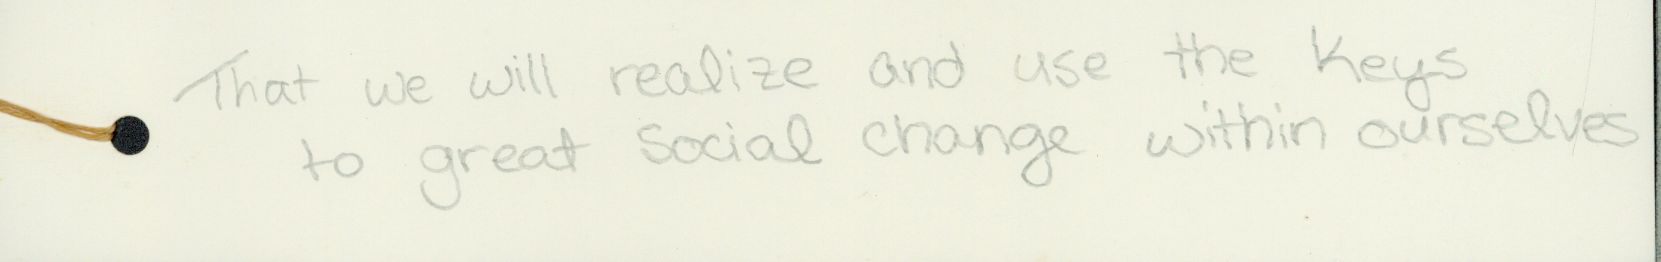 That we will realize and use the keys
to great social change within ourselves